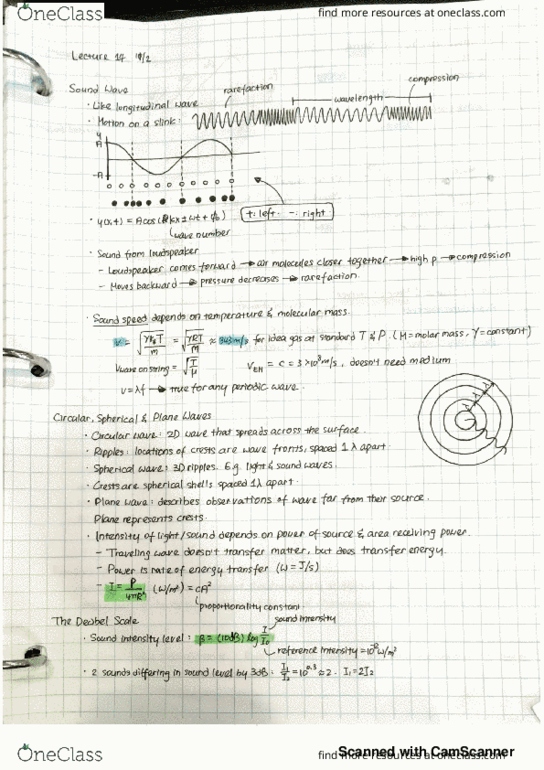 OneClass
find more resources at oneclass.com
Lecture 17 10/2
Sound Wave
rarefaction
compression
wavelength
· Like longitudinal wave
· Motion on a slink:
y
A
-A
+: left. -: right
· y(x,t) = A cos(kx ± ωt + φ0)
wave number
· Sound from loudspeaker
- Loudspeaker comes forward → air molecules closer together → high p → compression
- Moves backward → pressure decreases → rarefaction.
· Sound speed depends on temperature & molecular mass.
v = √(γkBT/m) = √(γRT/M) ≈ 343 m/s for idea gas at standard T & P. (M=molar mass, γ=constant)
Vwave on string = √(T/μ)
VEM = c = 3×10⁸ m/s, doesn't need medium
v=λf → true for any periodic wave.
Circular, Spherical & Plane Waves
· Circular wave: 2D wave that spreads across the surface.
· Ripples: locations of crests are wave fronts, spaced 1 λ apart.
· Spherical wave: 3D ripples. E.g. light & sound waves.
· Crests are spherical shells spaced 1λ apart.
· Plane wave: describes observations of wave far from their source.
Plane represents crests.
λ λ λ
· Intensity of light/sound depends on power of source & area receiving power.
- Traveling wave doesn't transfer matter, but does transfer energy.
- Power is rate of energy transfer (W = J/s)
- I = P/4πR² (W/m²) = cA²
proportionality constant
The Decibel Scale
sound intensity
· Sound intensity level: β = (10dB) log I/I0
reference intensity = 10⁻¹² W/m²
· 2 sounds differing in sound level by 3dB: I1/I2 = 10^0.3 ≈ 2. I1 = 2I2
OneClass
find more resources at oneclass.com
Scanned with CamScanner